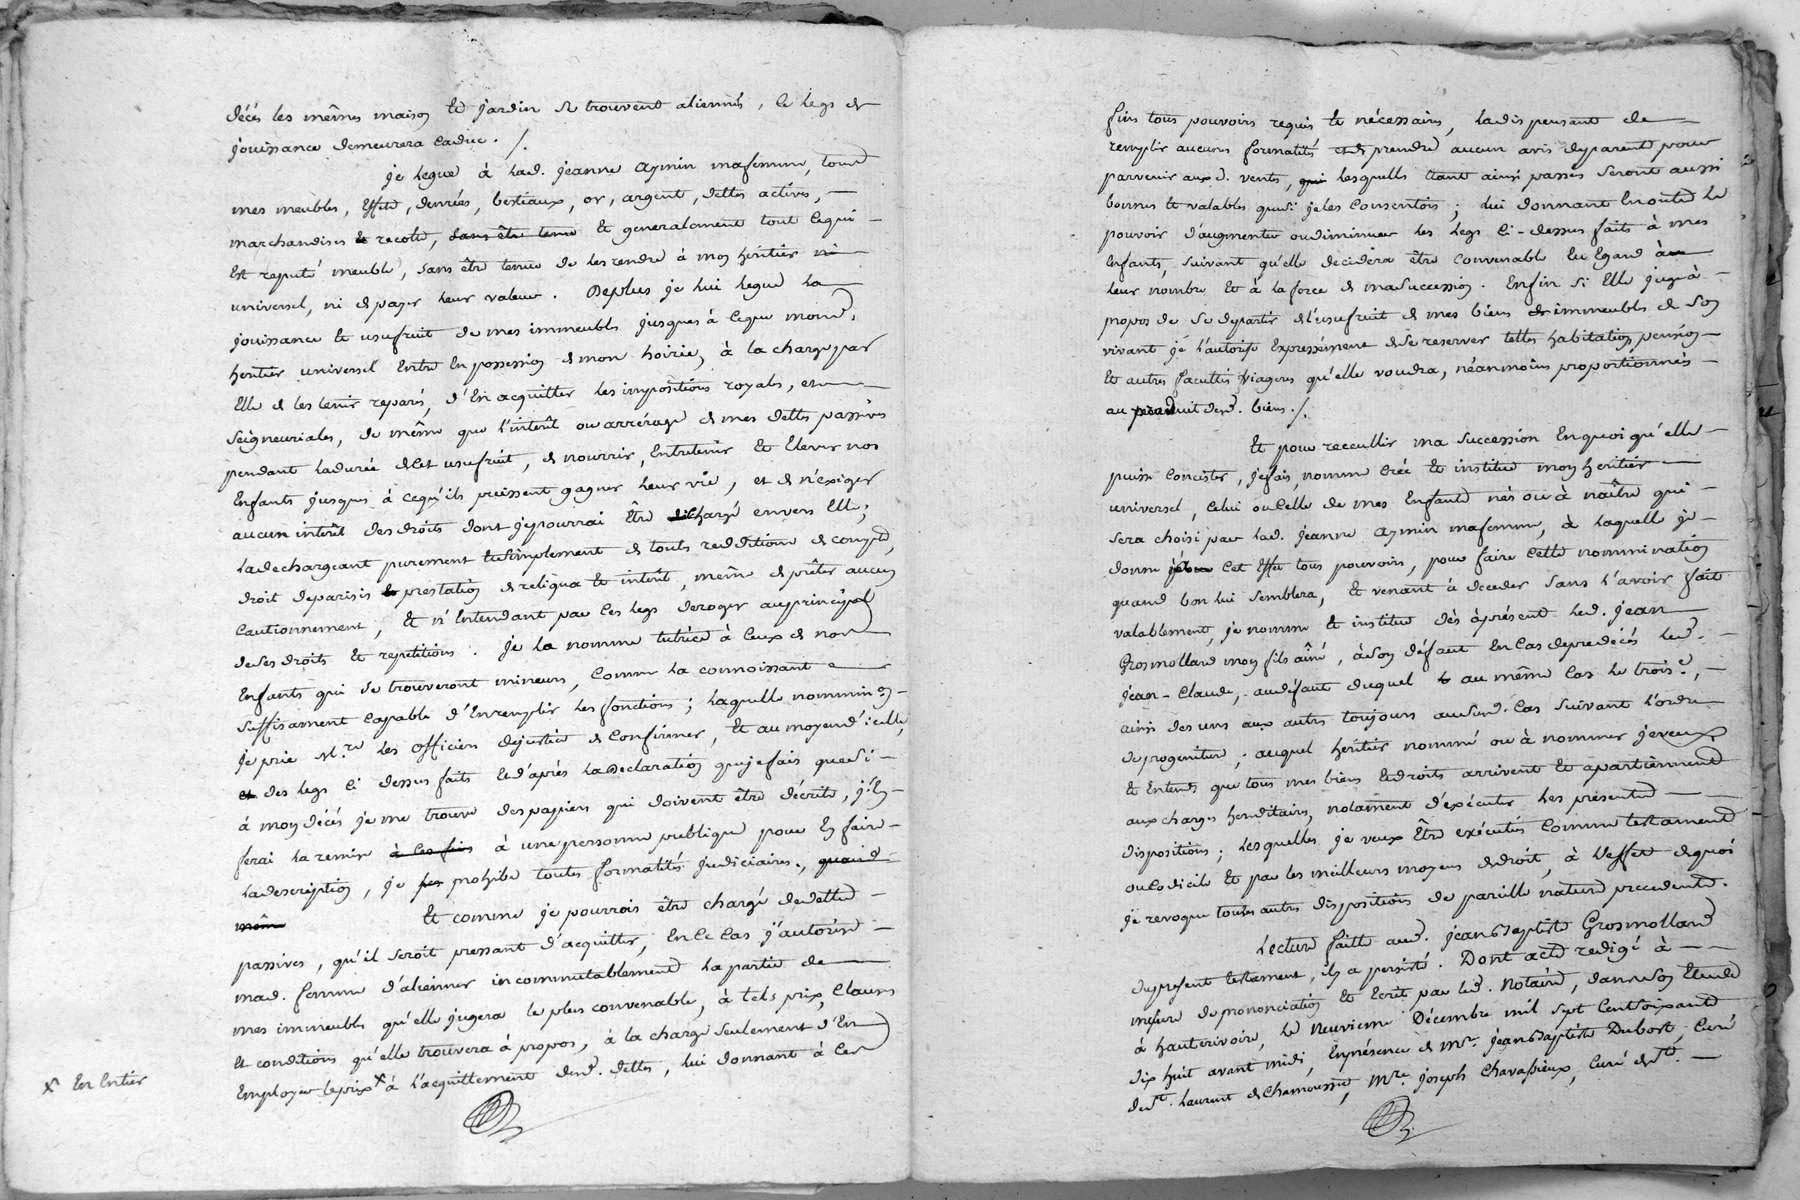 décés les mêmes maison et jardin se trouvent aliennés, le legs de
jouissance demeurera caduc ./.
je legue à lad. jeanne aymin mafemme, tous
mes meubles, effets, denrées, bestiaux, or, argent, dettes actives,
marchandises et recolte, sans être tenue et generalement tout cequi
est reputé meuble, sans être tenue de les rendre à mon heritier ni
universel, ni de payer leur valeur. Deplus je lui legue la
jouissance et usufruit de mes immeubles jusques à ceque mond.
heritier universel entre en possession de mon hoirie, à la charge par
elle de les tenir reparés, d'en acquitter les impositions royales, et
seigneuriales, de même que l'interêt ou arrérage de mes dettes passives
pendant ladurée de cet usufruit, de nourrir, entretenir et elever nos
enfants jusques à cequ'ils puissent gagner leur vie, et de n'éxiger
aucun interêt des droits dont jepourrai être chargé envers elle;
ladechargeant purement et simplement de toute reddition de compte,
droit deparisis et prestation de reliqua et interêt, même de prêter aucun
cautionnement, et n'entendant par ces legs deroger auprincipal
deses droits et repetitions. je la nomme tutrice à ceux de nos
enfants qui se trouveront mineurs, comme la connoissant
suffisament capable d'enremplir les fonctions; laquelle nommin.on
je prie M.rs les officiers dejustice de confirmer, et au moyend'icelle,
et des legs ci dessus faits et d'aprés ladeclaration quejefais quesi
à mon décés je me trouve des papiers qui doivent être décrits, j'en
ferai la remise à ces fins à une personne publique pour en faire
ladescription, je prohibe toutes formalités judiciaires, quand
même et comme je pourrois être chargé dedettes
passives, qu'il seroit pressant d'acquitter, en ce cas j'autorise
mad. femme d'alienner incommutablement la partie de
mes immeubles qu'elle jugera le plus convenable, à tels prix, clauses
et conditions qu'elle trouvera à propos, à la charge seulement d'en
employer leprix x à l'acquittement desd. dettes, lui donnant à ces
x en entier
fins tous pouvoirs requis et nécessaires, ladispensant de
remplir aucunes formalités et de prendre aucun avis deparents pour
parvenir auxd. ventes, qui lesquelles etant ainsi passés seront aussi
bonnes et valables quesi jeles consentois; lui donnant enoutre le
pouvoir d'augmenter oudiminuer les legs ci-dessus faits à mes
enfants, suivant qu'elle decidera être convenable eu egard à
leur nombre et à la force de masuccession. Enfin si elle juge à
propos de se departir de l'usufruit de mes biens immeubles de son
vivant, je l'autorise expressément de se reserver telles habitation, pension
et autres facultés viageres qu'elle voudra, néanmoins proportionnés
au produit desd. biens ./.
Et pour receullir ma succession enquoi qu'elle
puisse concister, jefais, nomme crée et institue mon heritier
universel, celui oucelle de mes enfants nés ou à naître qui
sera choisi par lad. jeanne aymin mafemme, à laquelle je
donne cet effet tous pouvoirs, pour faire cette nommination
quand bon lui semblera, et venant à deceder sans l'avoir fait
valablement, je nomme et institue dès àprésent led. jean
Grosmolland mon fils aîné, àson défaut encas depredécés led.
jean-Claude, audéfaut duquel et au même cas le trois.e,
ainsi des uns aux autres toujours aususd. cas suivant l'ordre
de progeniture; auquel heritier nommé ou à nommer jeveux
et entends que tous mes biens etdroits arrivent et apartiennent
aux charges hereditaires, notament d'exécuter les presentes
dispositions; lesquelles je veux être exécutés comme testament
oucodicile et par les meilleurs moyens dedroit, à l'effet dequoi
je revoque toutes autres dispositions de pareille nature precedentes.
Lecture faitte aud. jeanbaptiste Grosmolland
duprésent testament, il y a persisté. Dont acte redigé à
mesure de prononciation et ecrit par led. notaire, dans son etude
à hauterivoire, le neuvieme Décembre mil sept centsoixante
dix huit avant midi, enpresence de M.re jeanbaptiste Dubost, curé
de S.t Laurent de Chamousset, M.re joseph Chavassieux, curé de S.t